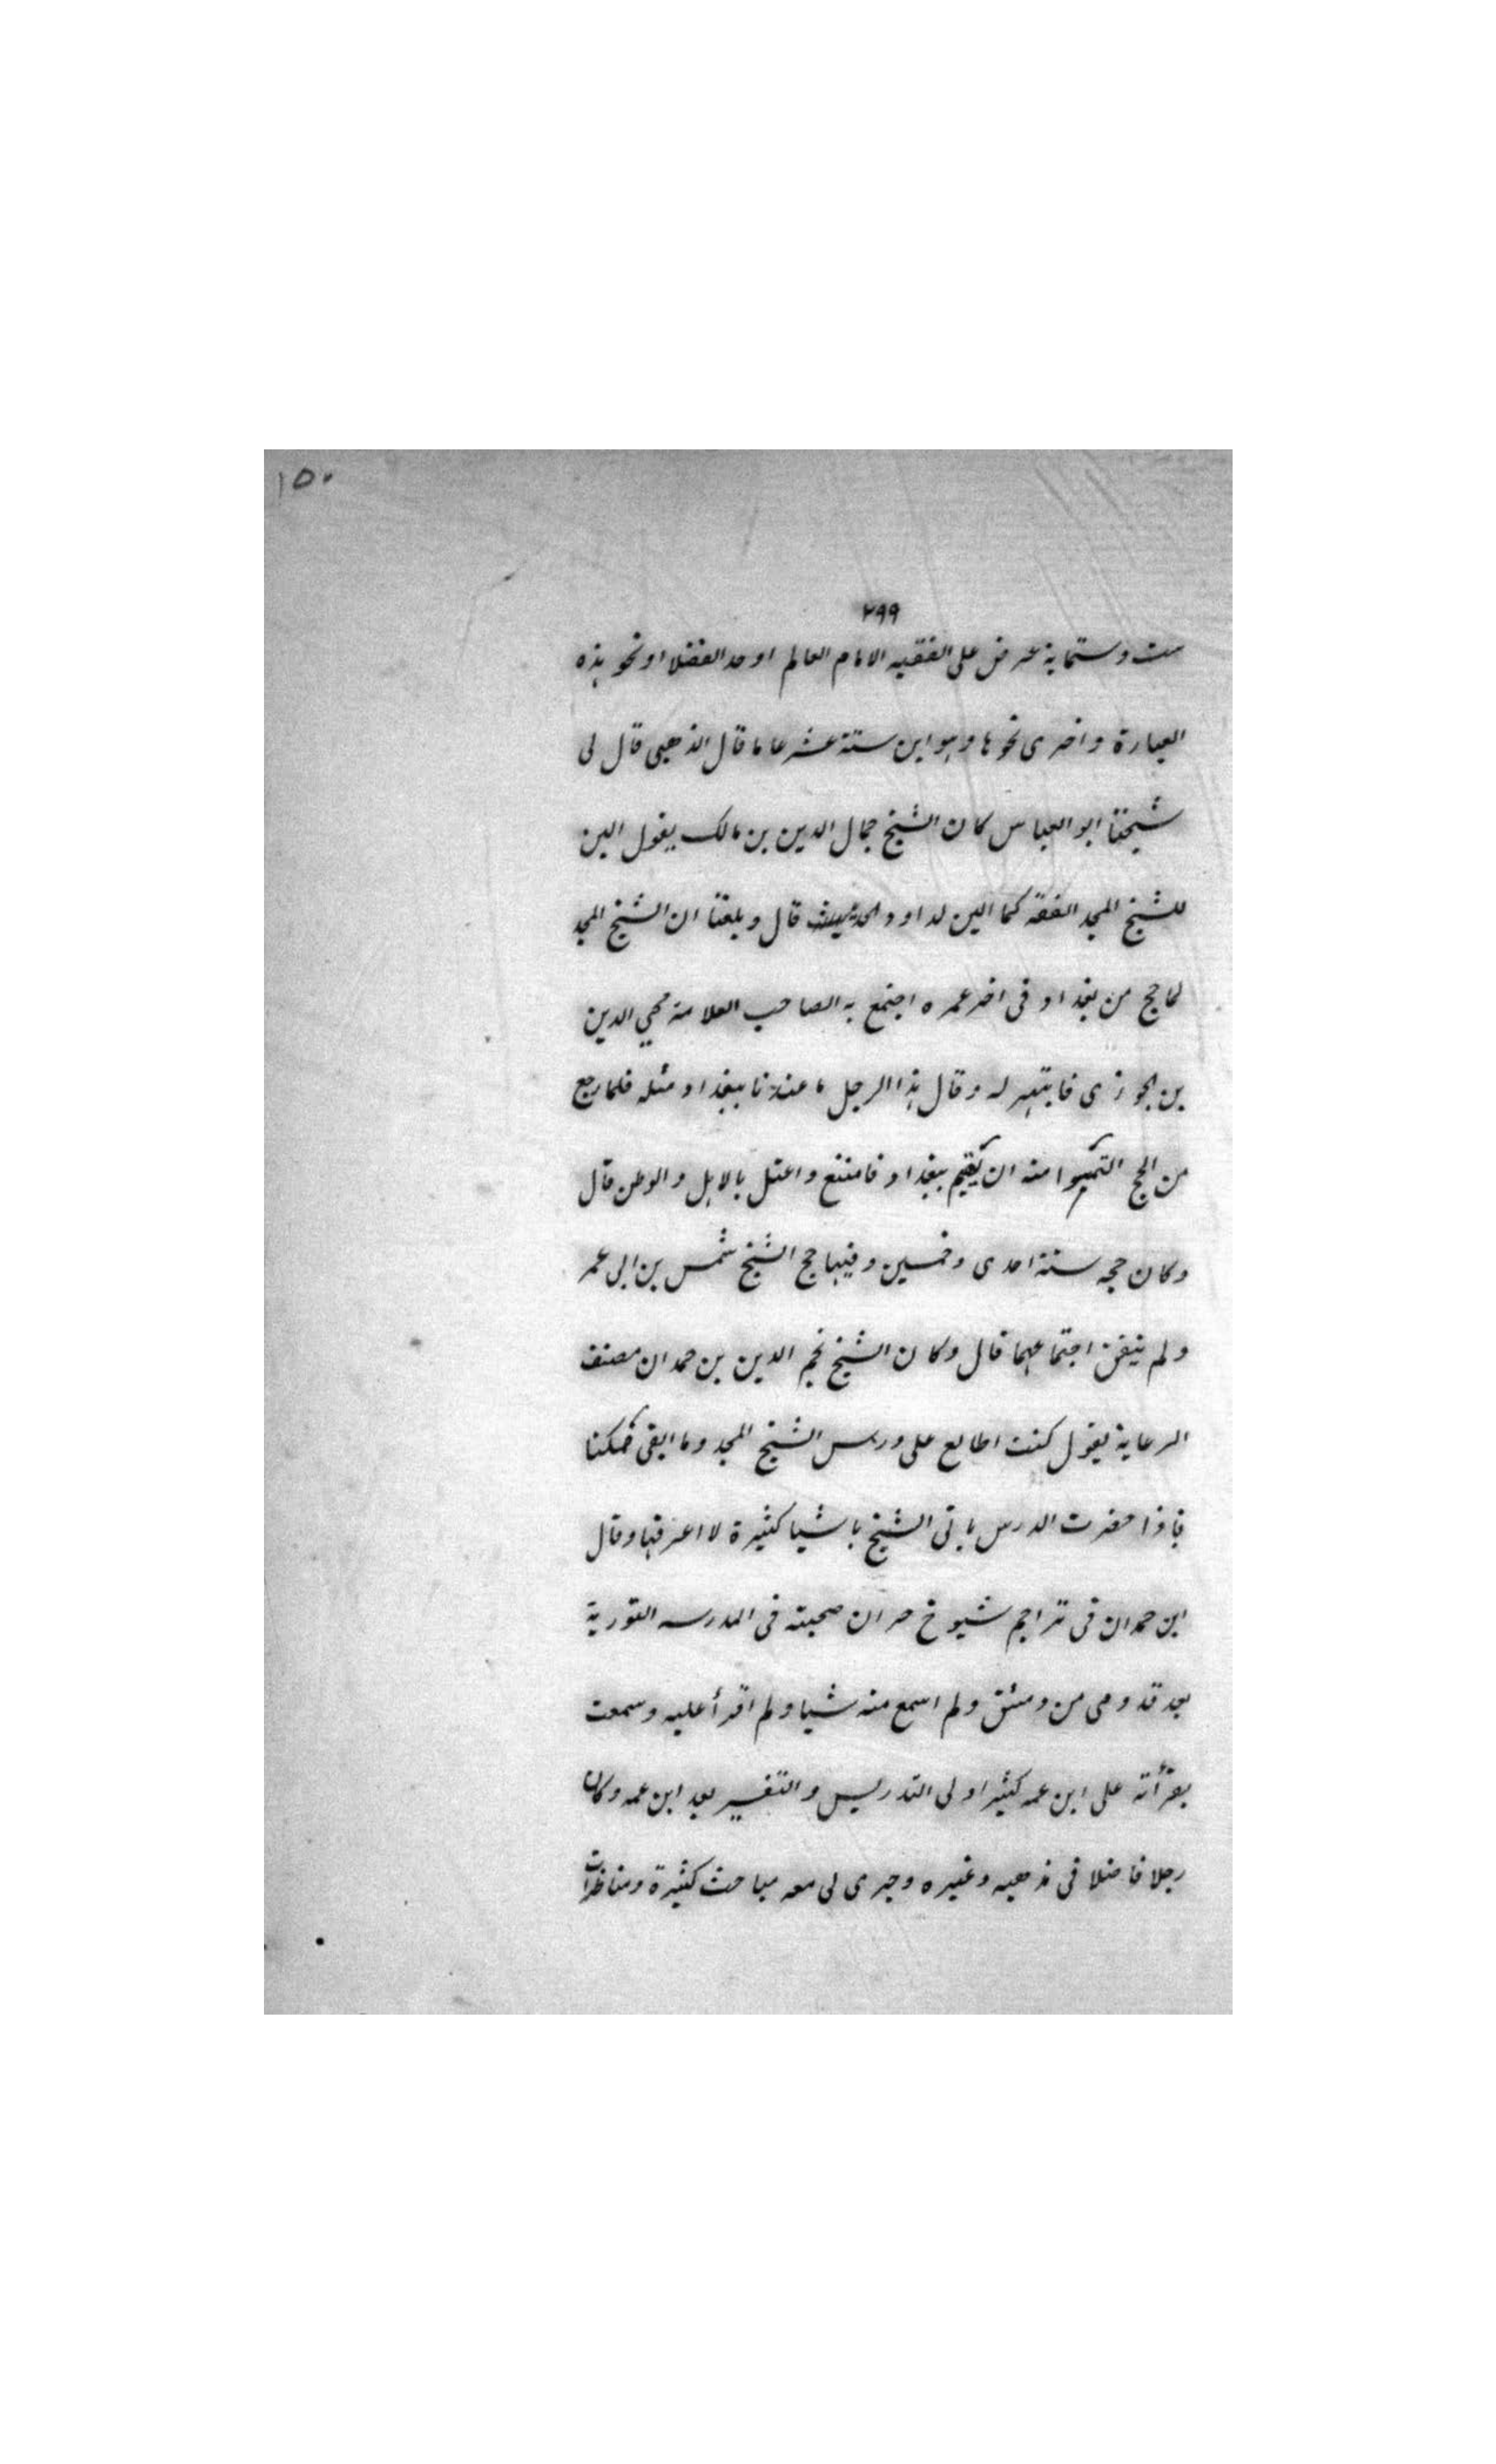 ١٥٠
٢٩٩
ست وستماية عرض على الفقيه الامام العالم اوحد الفضلا او نحو هذه
العبارة واخرى نحوها وهو ابن ستة عشر عاما قال الذهبى قال لى
شيخنا ابو العباس كان الشيخ جمال الدين بن مالك يقول الين
للشيخ المجد الفقه كما الين لداود الحديث قال وبلغنا ان الشيخ المجد
لما حج من بغداد فى اخر عمره اجتمع به الصاحب العلامة محيي الدين
بن الجوزى فانبهر له وقال هذا الرجل ما عندنا ببغداد مثله فلما رجع
من الحج التمسوا منه ان يقيم ببغداد فامتنع واعتل بالاهل والوطن قال
وكان حجه سنة احدى وخمسين وفيها حج الشيخ شمس بن ابى عمر
ولم يتفق اجتماعهما قال وكان الشيخ نجم الدين بن حمدان مصنف
الرعاية يقول كنت اطالع على درس الشيخ المجد وما ابقى ممكنا
فاذا حضرت الدرس ياتى الشيخ باشيا كثيرة لا اعرفها وقال
ابن حمدان فى تراجم شيوخ حران صحبته فى المدرسه النورية
بعد قدومى من دمشق ولم اسمع منه شيا ولم اقرأ عليه وسمعت
بقرأته على ابن عمه كثيرا ولى التدريس والتفسير بعد ابن عمه وكان
رجلا فاضلا فى مذهبه وغيره وجرى لى معه مباحث كثيرة ومناظرات